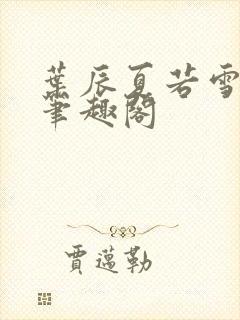 葉辰夏若雪
筆趣閣
賈邁勒